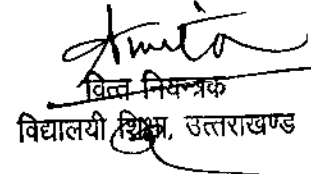 Amita
वित्त नियन्त्रक
विद्यालयी शिक्षा, उत्तराखण्ड